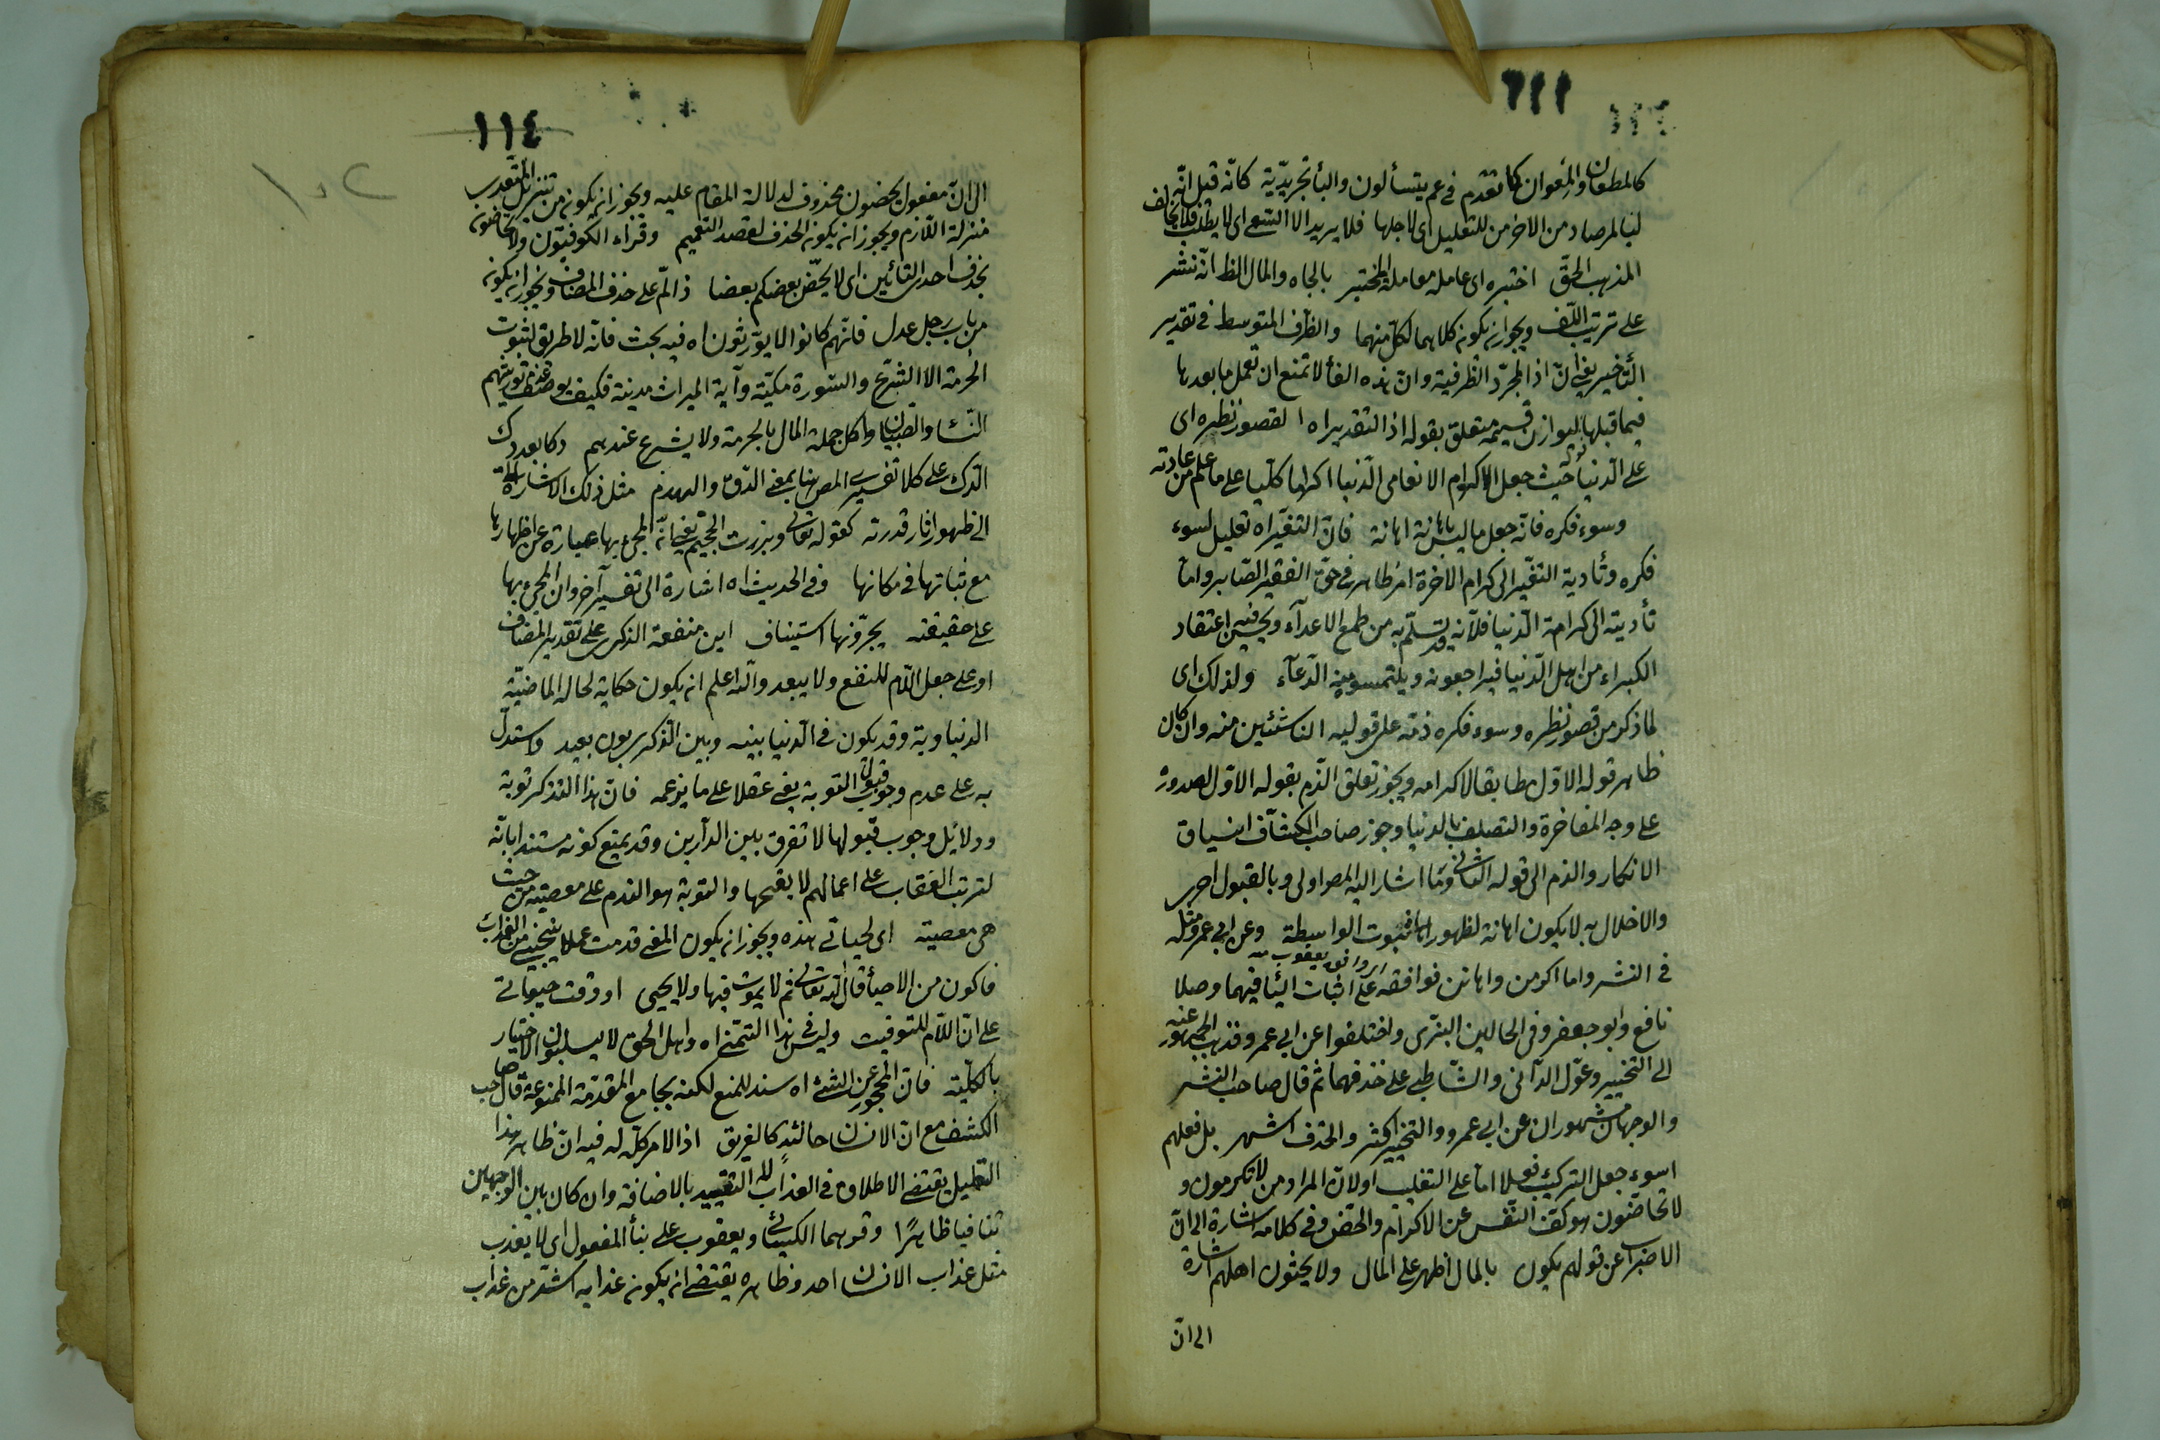 ١١٣
كالمطعان والمعوان كما تقدم في عم يتسألون والبأ تجريدية كانّه قيل انّه
لبالمرصاد من الاخرٰ من للتعليل اى لاجلها فلا يريد الا السعى اى لا يطلب
المذهب الحقّ اختبره اى عامله معاملة المختبر بالجاه والمال الظ انّه نشر
على ترتيب اللف ويجوز انه يكونه كلاهما لكل منهما والظرف المتوسط في تقدير
التأخير يعني انّ اذا لمجرّد الظرفية وانّ هذه الفألا تمنع ان تعمل ما بعدها
فيما قبلها ليوازن قسيمه متعلق بقوله اذ التقدير اه القصور نظره اى
على الدنيا حيث جعل الاكرام الانعامى الدنيا اكراما كليا على ما علم من عادته
وسوء فكره فانّه جعل ما ليس باهانة اهانة فانّ التقتير اه تعليل لسوء
فكره وتأدية التقتير الى كرام الاخرة امر ظاهر في حقّ الفقير الصّابر وامّا
تأديته الى كرامة الدنيا فلأنه قد يسلّم به من طمع الاعدآء ويحسن فيه اعتقاد
الكبراء من اهل الدنيا فيراجعونه ويلتمسون منه الدعآء ولذلك اى
لما ذكر من قصور نظره وسوء فكره ذمّه على قوليه الناشئين منه وان كان
ظاهر قوله الاوّل مطابقا لاكرامه ويجوز تعلق الذم بقوله الاوّل لصدوره
على وجه المفاخرة والتصلف بالدنيا وجوز صاحب الكشّاف انسياق
الانكار والذم الى قوله الثانى وما اشار اليه المص اولى وبالقبول احرى
والاخلال به لا يكون اهانة لظهور ثبوت الواسطة وعن ابى عمرو مثله
في النشر واما اكرمن واهانن فوافقه على اثبات اليأ فيهما وصلا
نافع وابو جعفر وفي الحالين البزّى واختلفوا عن ابى عمرو فذهب الجمهور عنه
الى التخيير وعوّل الدآنى والشّاطبى على حذفهما ثم قال صاحب النشر
والوجهان مشهوران عن ابى عمرو والتخيير اكثر والحذف اشهر بل فعلهم
اسوء جعل الترك فعلا امّا على التغليب او لانّ المراد من لا تكرمون و
لا تحاضّون هو كفّ النّفس عن الاكرام والحضّ وفي كلامه اشارة الى انّ
الاضراب عن قولهم يكون بالمال اظهر على المال ولا يحثون اهلهم اشارة
الى انّ
١١٤
الى انّ مفعول يحضون محذوف لدلالة المقام عليه ويجوز انه يكونه من تنزيل المتعدى
منزلة اللّازم ويجوز انه يكونه الحذف لقصد التعميم وقراء الكوفيّون ولا تحاضونه
بحذف احدى التائين اى لا يحضّ بعضكم بعضا ذا لمّ على حذف المضاف ويجوز انه يكونه
من باب رجل عدل فانّهم كانوا لا يورّثون اه فيه بحث فانّه لا طريق لثبوت
الحرمة الا الشرع والسّورة مكيّة وآية الميراث مدينة فكيف توريثهم
النسا والصّبيان واكل جملة المال بالحرمة ولا يشرع عندهم دكا بعد دك
الدّك على كلا تفسيرى المص هنا بمعنى الدّق والهدم مثل ذلك الاشارة
الى ظهور اثار قدرته كقوله تعالى وبرزت الجحيم يعنى انّ المجئ بها عبارة عن اظهارها
مع ثباتها في مكانها وفي الحديث اه اشارة الى تفسير آخر وان المجئ بها
على حقيقته يجرّونها استيناف اين منفعة الذكرى على تقدير المضاف
او على جعل اللّام للنفع ولا يبعد والله اعلم انه يكون حكاية لحاله الماضيّة
الدنياوية وقد يكون في الدنيا بينه وبين الذكرى بون بعيد واستدلّ
به على عدم وجوب قبول التوبة يعنى عقلا على ما يزعمه فانّ هذا التذكر توبة
ودلائل وجوب قبولها لا تفرق بين الدآرين وقد يمنع كونه مستندا بانّه
لترتب العقاب على اعمالهم لا بقبحها والتوبة هو الندم على معصيته من حيث
هى معصية اى لحياتى هذه ويجوز انه يكون المعنى قدمت عملا ينجينى من العذاب
فاكون من الاحيأ قال الله تعالى ثم لا يموت فيها ولا يحيى او وقت حيوتى
على انّ اللّام للتوقيت وليس في هذا التمنى اه واهل الحق لا يسلبون الاختيار
بالكليّة فانّ المحجور عن الشئ اه سند للمنع لكنه يجامع المقدمة الممنوعة قال صاحب
الكشف مع انّ الانسان حالئذٍ كالغريق اذ الامر كلّه له فيه انّ ظاهر هذا
التعليل يقتضى الاطلاق في العذاب لله التقييد بالاضافة وان كان بين الوجهين
تنافيا ظاهرًا وقرءهما الكسائى ويعقوب على بنأ المفعول اى لا يعذب
مثل عذاب الانسان احد وظاهره يقتضى انه يكونه عذابه اشدّ من عذاب